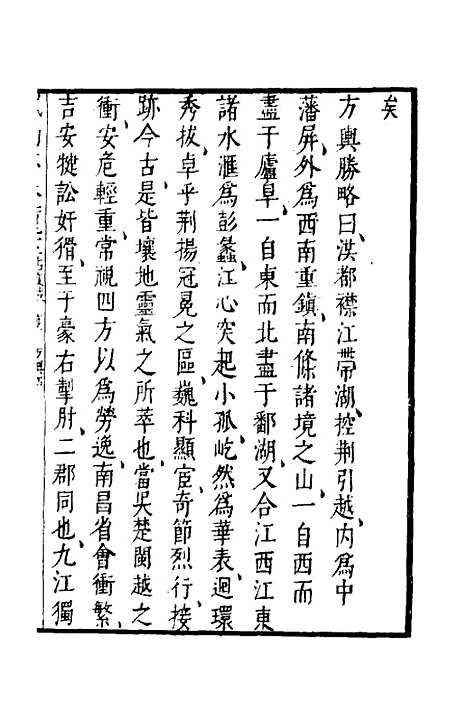 矣
方輿勝略曰、洪都襟江帶湖、控荆引越、内為中
藩屏、外為西南重鎮、南條諸境之山、一自西而
盡于廬阜、一自東而北盡于鄱湖、又合江西江東
諸水滙為彭蠡、江心突起小孤、屹然為華表、迴環
秀拔、卓乎荆揚冠冕之區、巍科顯宦、奇節烈行、接
跡今古、是皆壤地靈氣之所萃也、當吳楚閩越之
衝、安危輕重、常視四方以為勞逸、南昌省會衝繁、
吉安健訟奸猾、至于豪右掣肘、二郡同也、九江獨